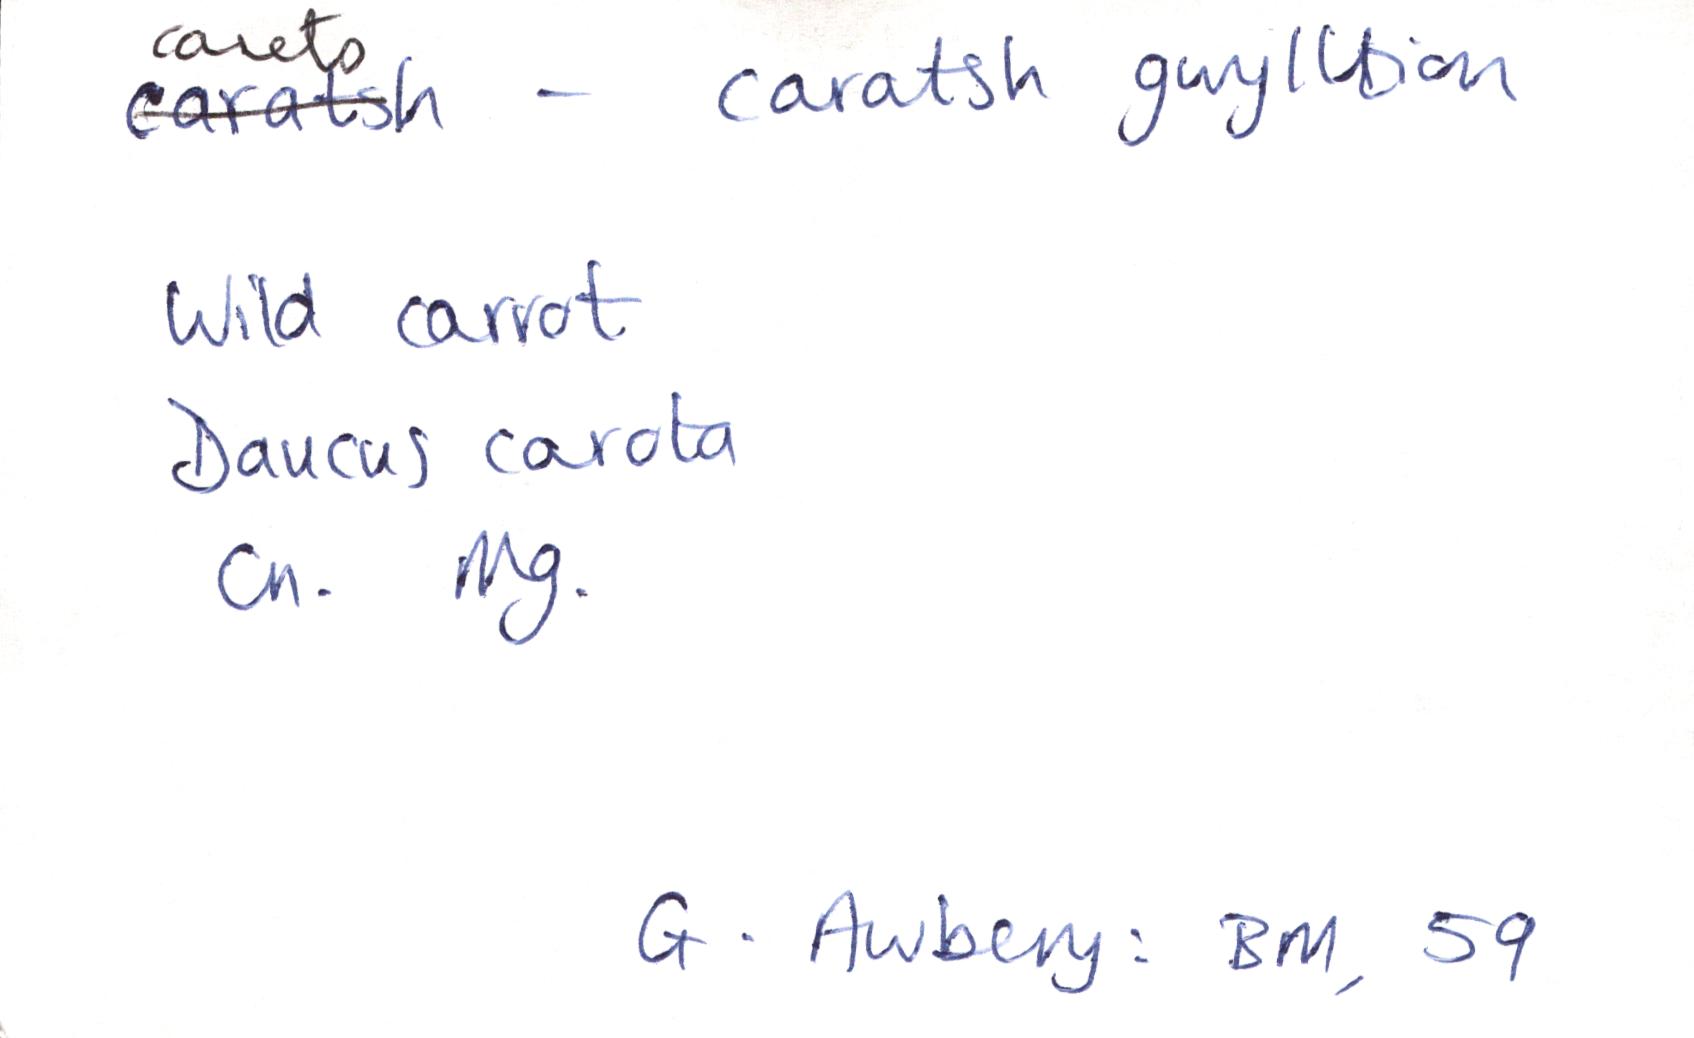 carets
caratsh - caratsh gwylltion
Wild carrot
Daucus carota
Cn. Mg.
G. Awbery: BM, 59